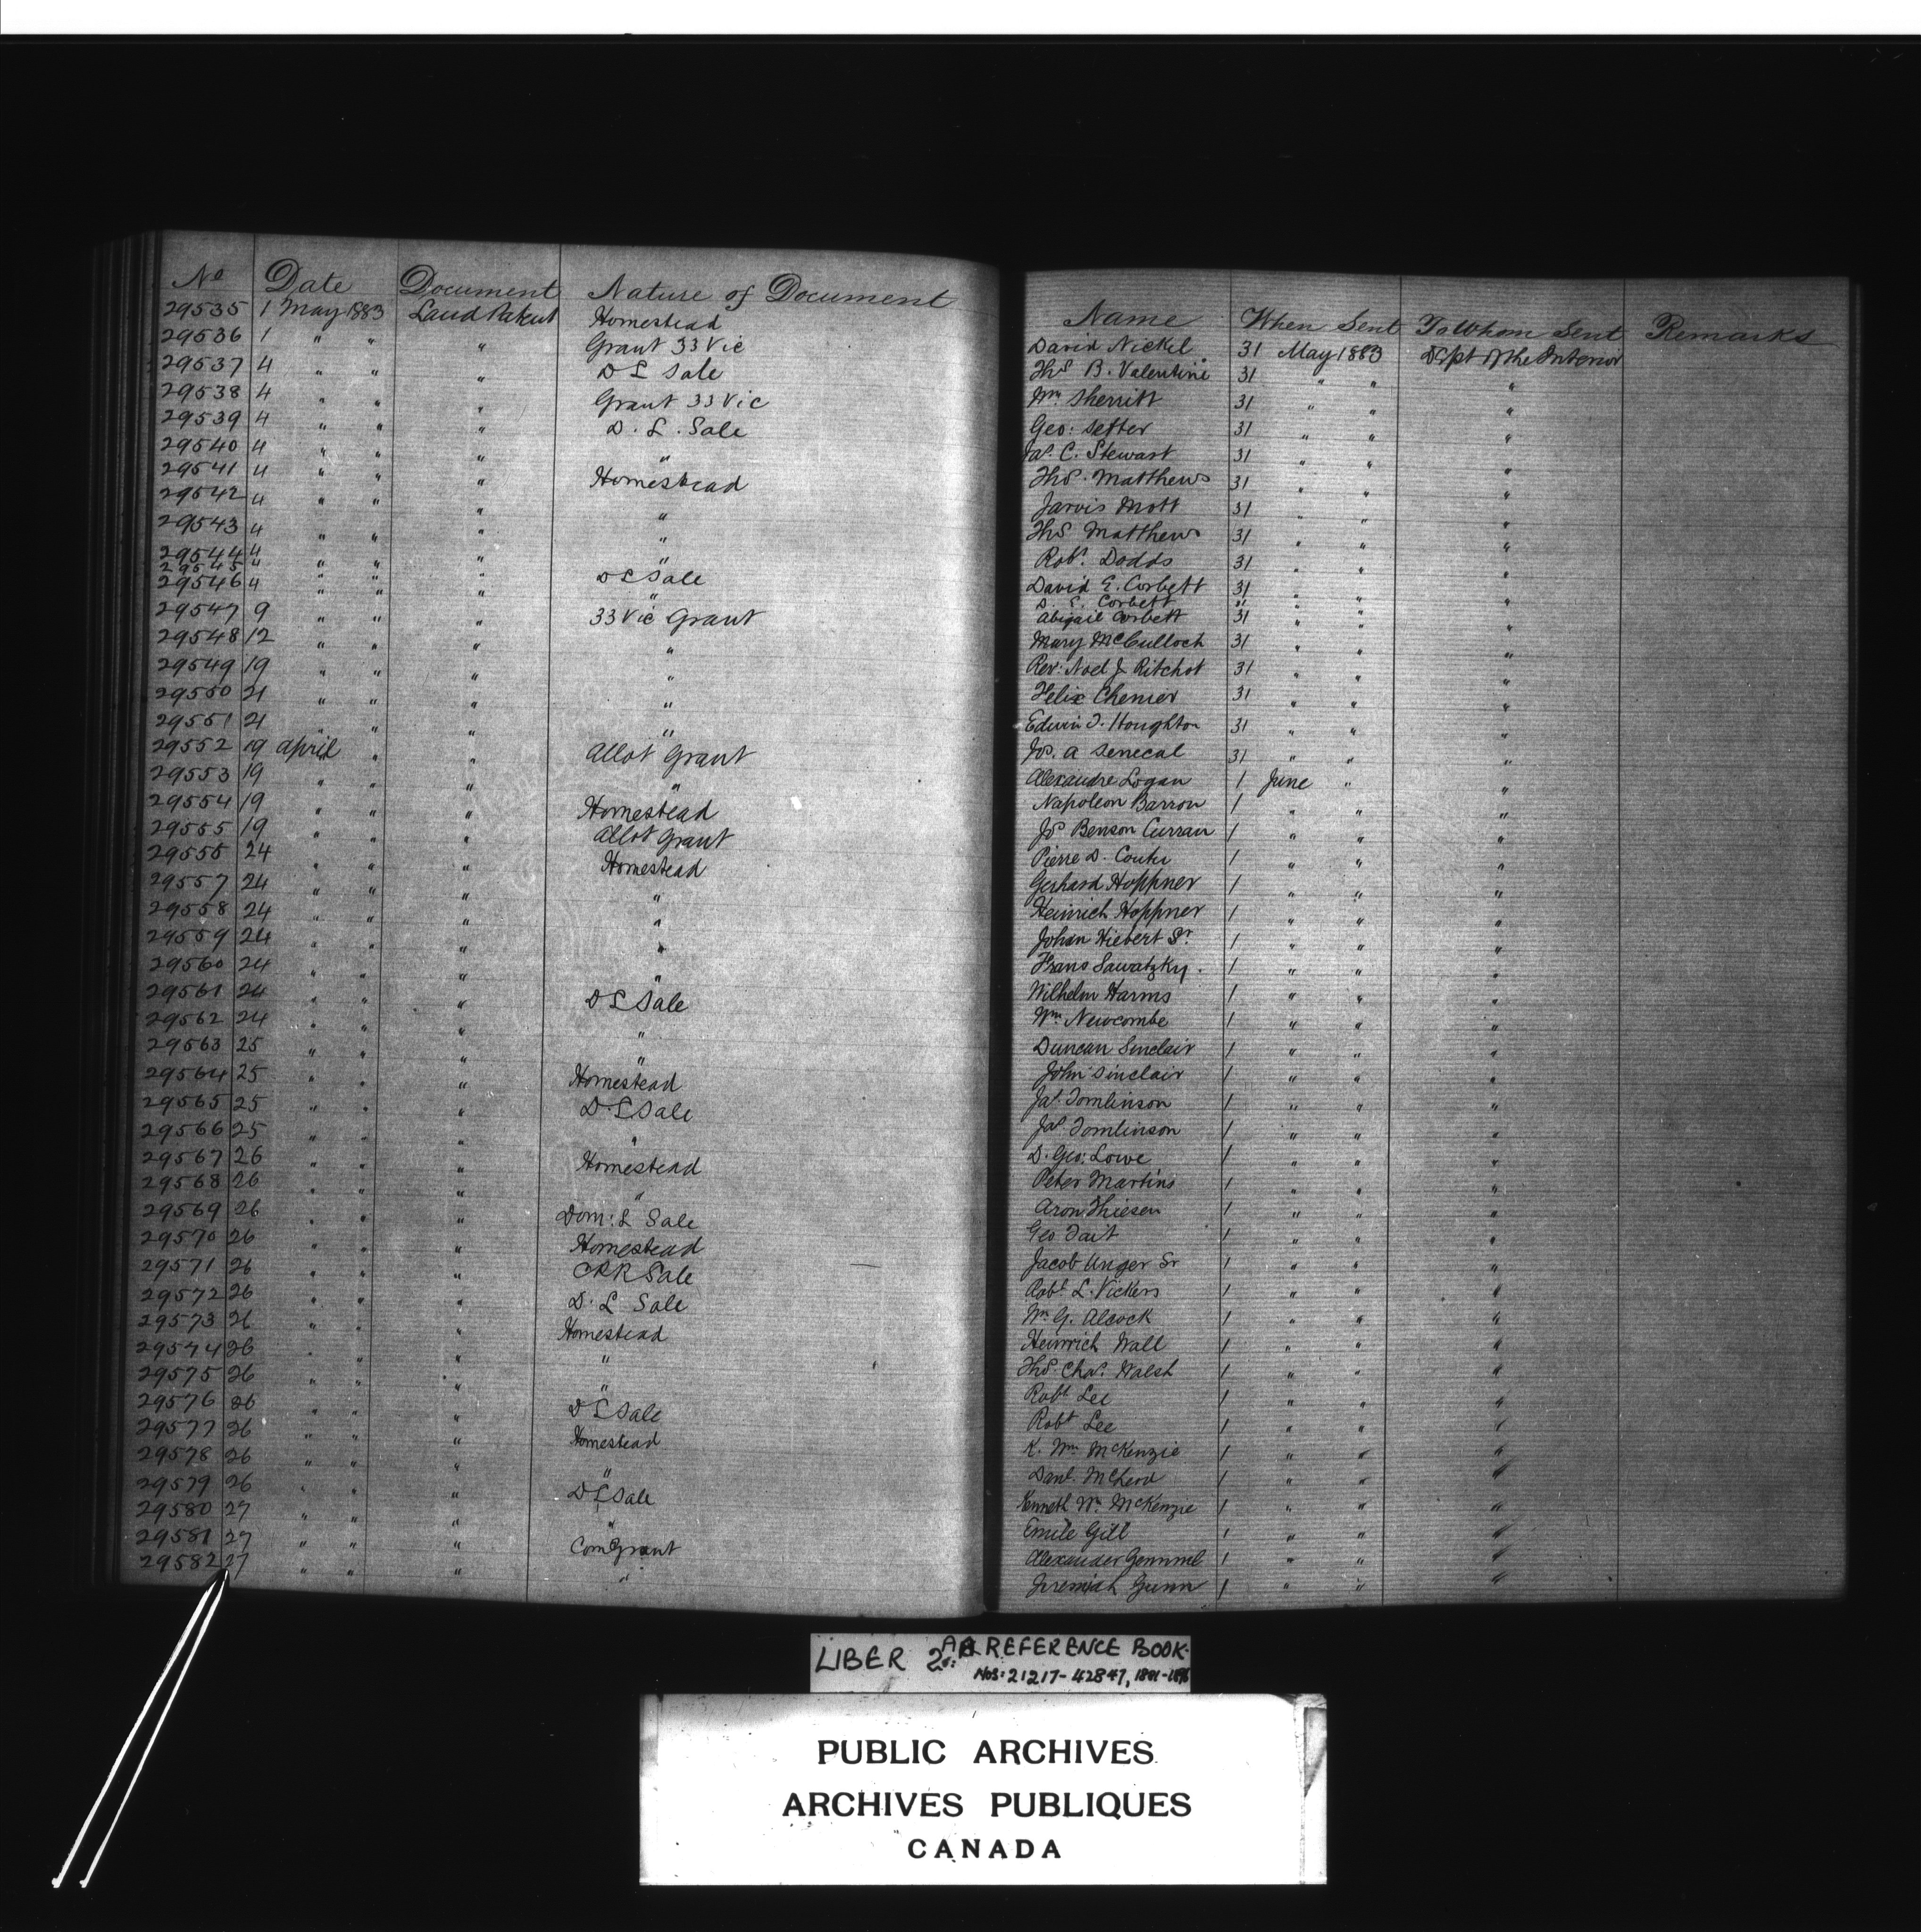 No Date Document Nature of Document
29535 1 May 1883 Land Patent Homestead
29536 1 " " " Grant 33 Vic
29537 4 " " " D L Sale
29538 4 " " " Grant 33 Vic
29539 4 " " " D. L. Sale
29540 4 " " " "
29541 4 " " " Homestead
29542 4 " " " "
29543 4 " " " "
29544 4 " " " "
29545 4 D L Sale
29546 4 " " " "
29547 9 " " " 33 Vic Grant
29548 12 " " " "
29549 19 " " " "
29550 21 " " " "
29551 21 " " " "
29552 19 April " " Allot Grant
29553 19 " " " "
29554 19 " " " Homestead
29555 19 " " " Allot Grant
29556 24 " " " Homestead
29557 24 " " " "
29558 24 " " " "
29559 24 " " " "
29560 24 " " " "
29561 24 " " " D L Sale
29562 24 " " " "
29563 25 " " " "
29564 25 " " " Homestead
29565 25 " " " D. L Sale
29566 25 " " " "
29567 26 " " " Homestead
29568 26 " " " "
29569 26 " " " Dom: L Sale
29570 26 " " " Homestead
29571 26 " " " CPR Sale
29572 26 " " " D. L Sale
29573 26 " " " Homestead
29574 26 " " " "
29575 26 " " " "
29576 26 " " " D L Sale
29577 26 " " " Homestead
29578 26 " " " "
29579 26 " " " D L Sale
29580 27 " " " "
29581 27 " " " Com Grant
29582 27 " " " "
Name When Sent To Whom Sent Remarks
David Nickel 31 May 1883 Dept of the Interior
ThS B. Valentine 31 " " "
Wm Sherritt 31 " " "
Geo: Setter 31 " " "
Jas. C. Stewart 31 " " "
ThS. Matthews 31 " " "
Jarvis Mott 31 " " "
ThS Matthews 31 " " "
Robt. Dodds 31 " " "
David E. Corbett 31 " " "
D. E. Corbett " " "
Abigail Corbett 31 " " "
Mary McCulloch 31 " " "
Rev: Noel J Ritchot 31 " " "
Felix Chenier 31 " " "
Edwin T. Houghton 31 " " "
Jos. A Senecal 31 " " "
Alexandre Logan 1 June " "
Napoleon Barron 1 " " "
Jos Benson Curran 1 " " "
Pierre D. Coutu 1 " " "
Gerhard Hoppner 1 " " "
Heinrich Hoppner 1 " " "
Johan Hiebert Sr. 1 " " "
Frans Sawatzky. 1 " " "
Wilhelm Harms 1 " " "
Wm Newcombe 1 " " "
Duncan Sinclair 1 " " "
John Sinclair 1 " " "
Jas. Tomlinson 1 " " "
Jas. Tomlinson 1 " " "
D. Geo: Lowe 1 " " "
Peter Martins 1 " " "
Aron Thiesen 1 " " "
Geo Tait 1 " " "
Jacob Unger Sr 1 " " "
Robt. L. Vickers 1 " " "
Wm G. Alcock 1 " " "
Heinrich Wall 1 " " "
ThS. Chas. Walsh 1 " " "
Robt Lee 1 " " "
Robt Lee 1 " " "
K. Wm McKenzie 1 " " "
Danl. McLeod 1 " " "
Kenneth Wm McKenzie 1 " " "
Emile Gill 1 " " "
Alexander Gemmel 1 " " "
Jeremiah Gunn 1 " " "
LIBER 2A: REFERENCE BOOK.
Nos: 21217-42847, 1881-1896
PUBLIC ARCHIVES
ARCHIVES PUBLIQUES
CANADA